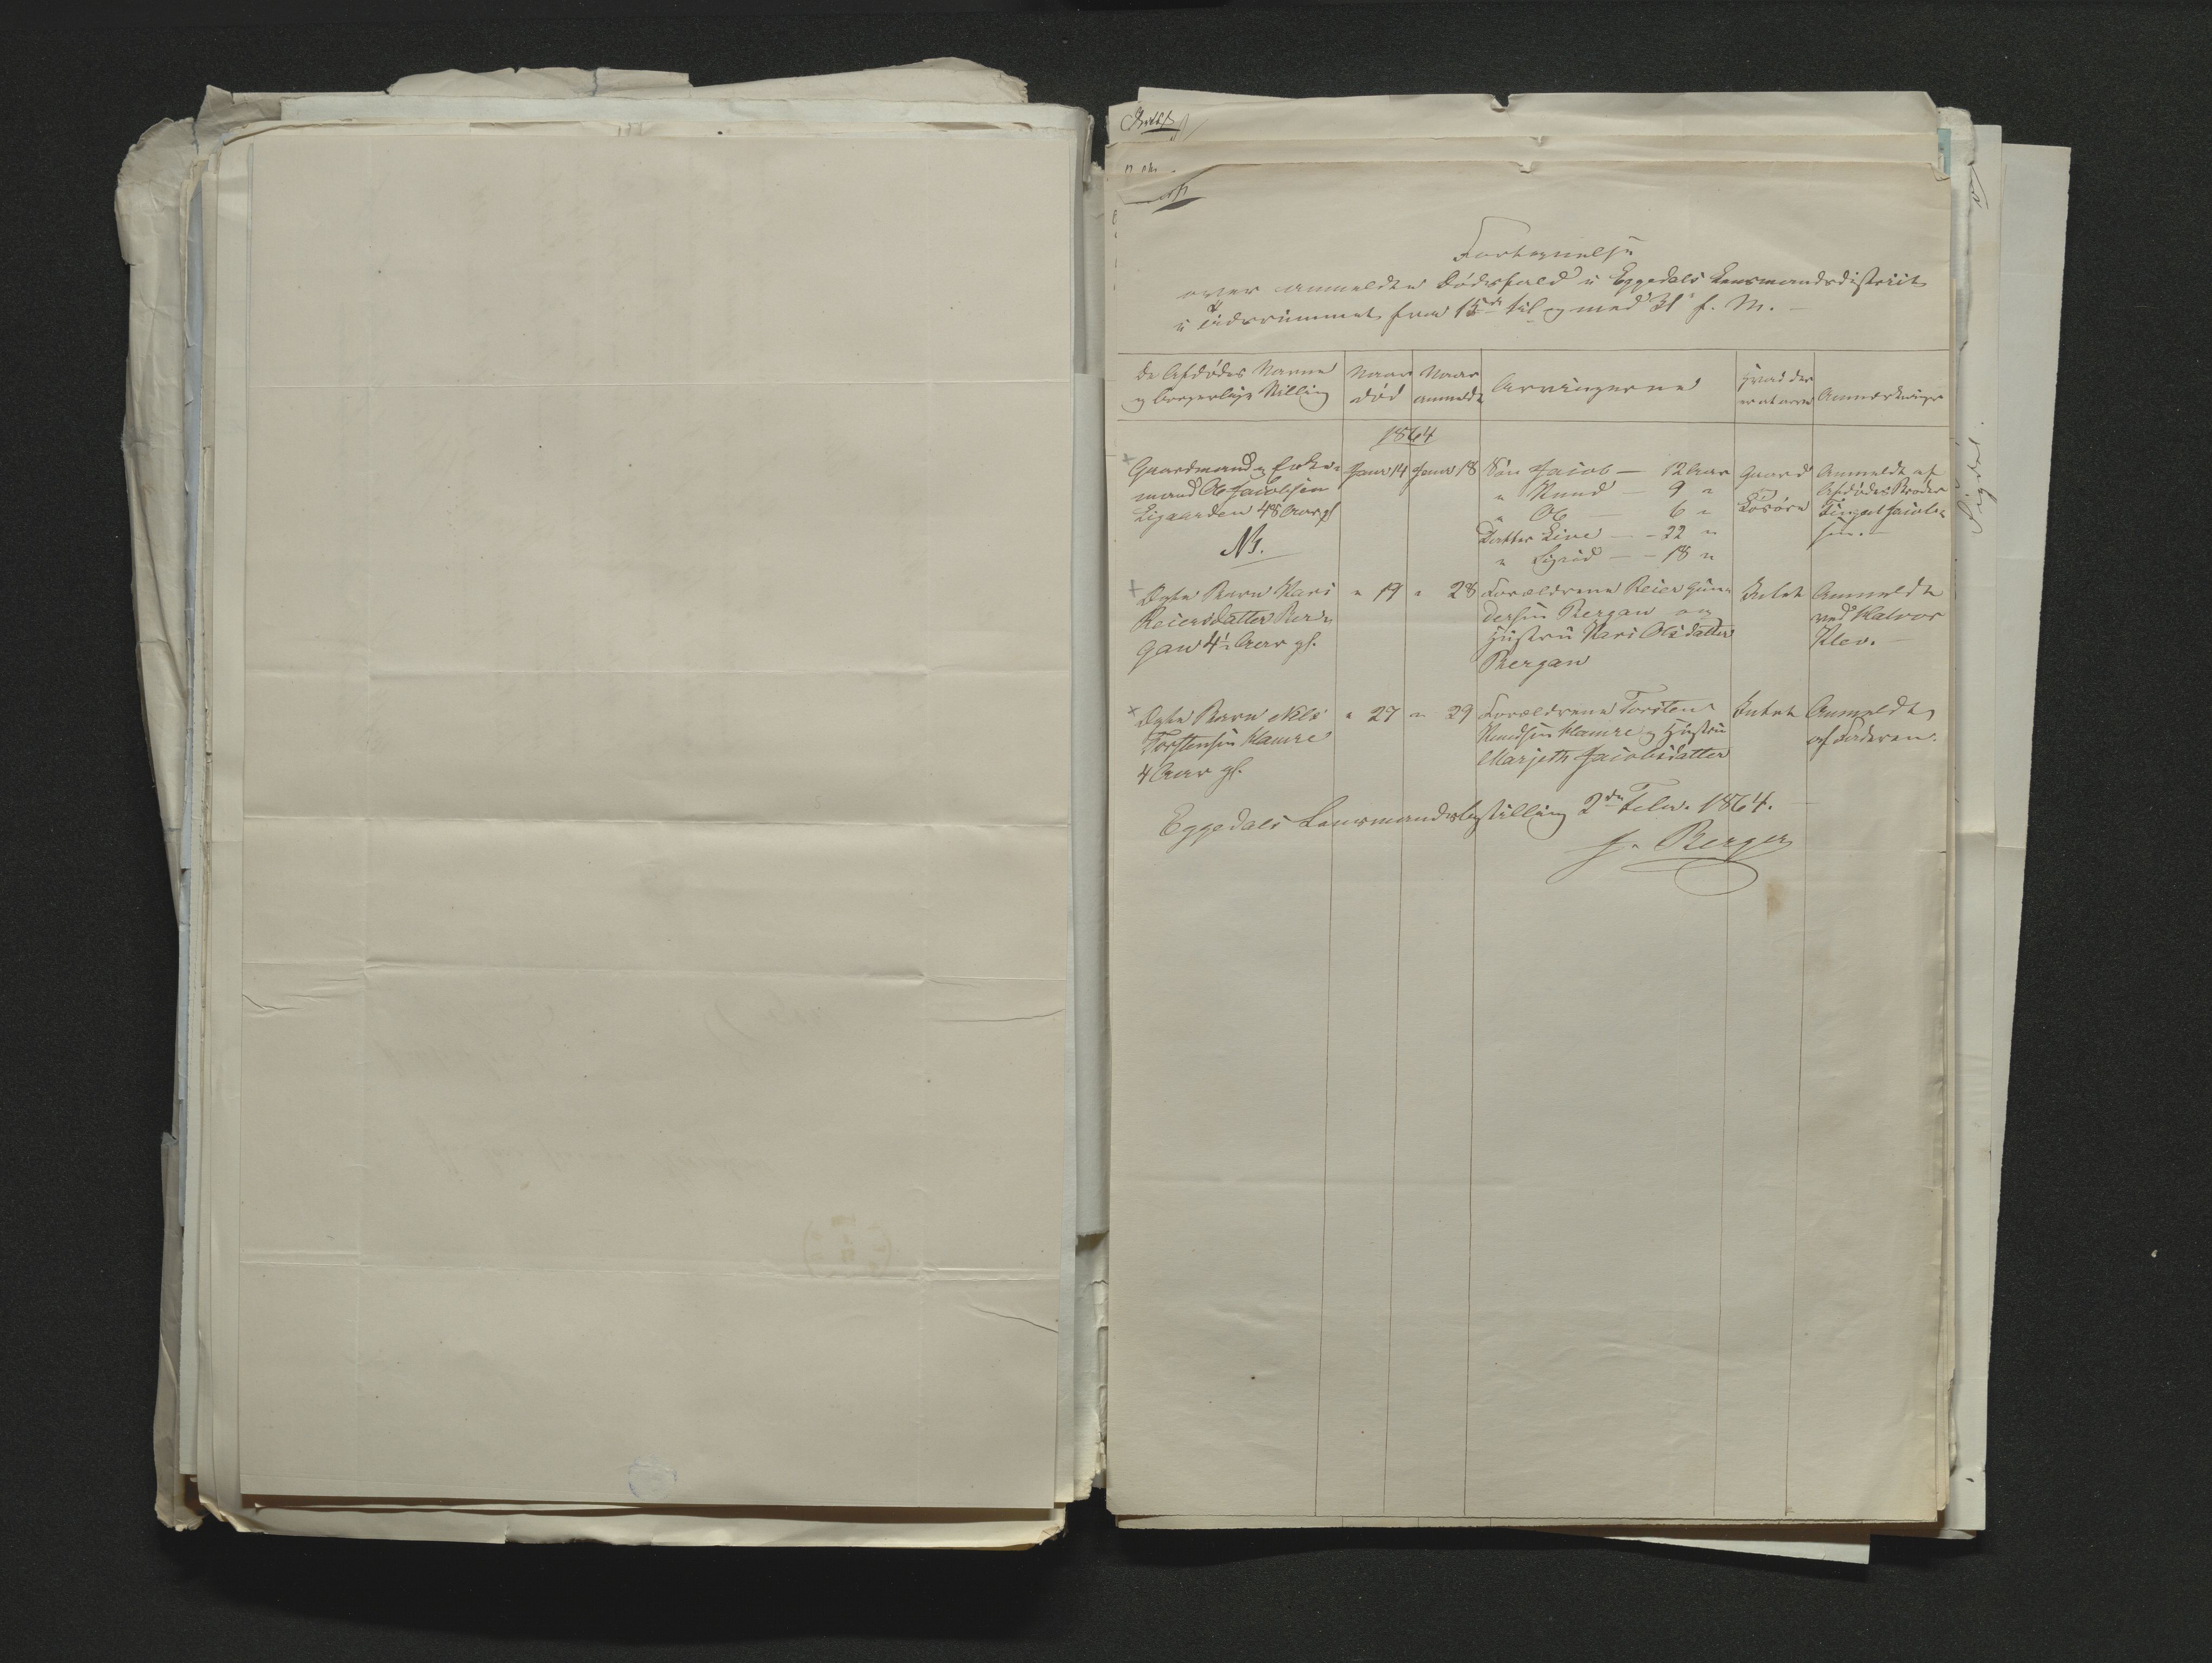 Fortegnelse
over anmeldte Dødsfald i Eggedals Lensmandsdistrict
i Tidsrummet fra 15de til og med 31 f. M. -
De Afdødes Navne
og borgerlige Stilling
Naar
død
Naar
anmeldt
Arvingerne
Hvad der
er at arve
Anmærkninger
1864
Gaardmand og Enke-
mand Ole Jacobsen
Ligaarden 48 Aar gl
NB.
Janr 14
Janr 18
Søn Jacob - 12 Aar
" Knud - 9 "
" Ole - 6 "
Datter Live - 22 "
" Sigrid - 18 "
Gaard
og
Løsøre
Anmeldt af
Afdødes Broder
Jacob-
sen. -
Døbte Barn Kari
Reiersdatter Ber-
gan 4½ Aar gl.
" 19
" 28
Forældrene Reier Gun-
dersen Bergan og
Hustru Kari Olsdatter
Bergan
Intet
Anmeldt
ved Halvor
Klev. -
Døbte Barn Nils
Torstensen Hamre
4 Aar gl.
" 27
" 29
Forældrene Torsten
Knudsen Hamre og Hustru
Marjeth Jacobsdatter
Intet
Anmeldt
af Faderen.
Eggedals Lensmandsbestilling 2den Febr. 1864.
J. Berger